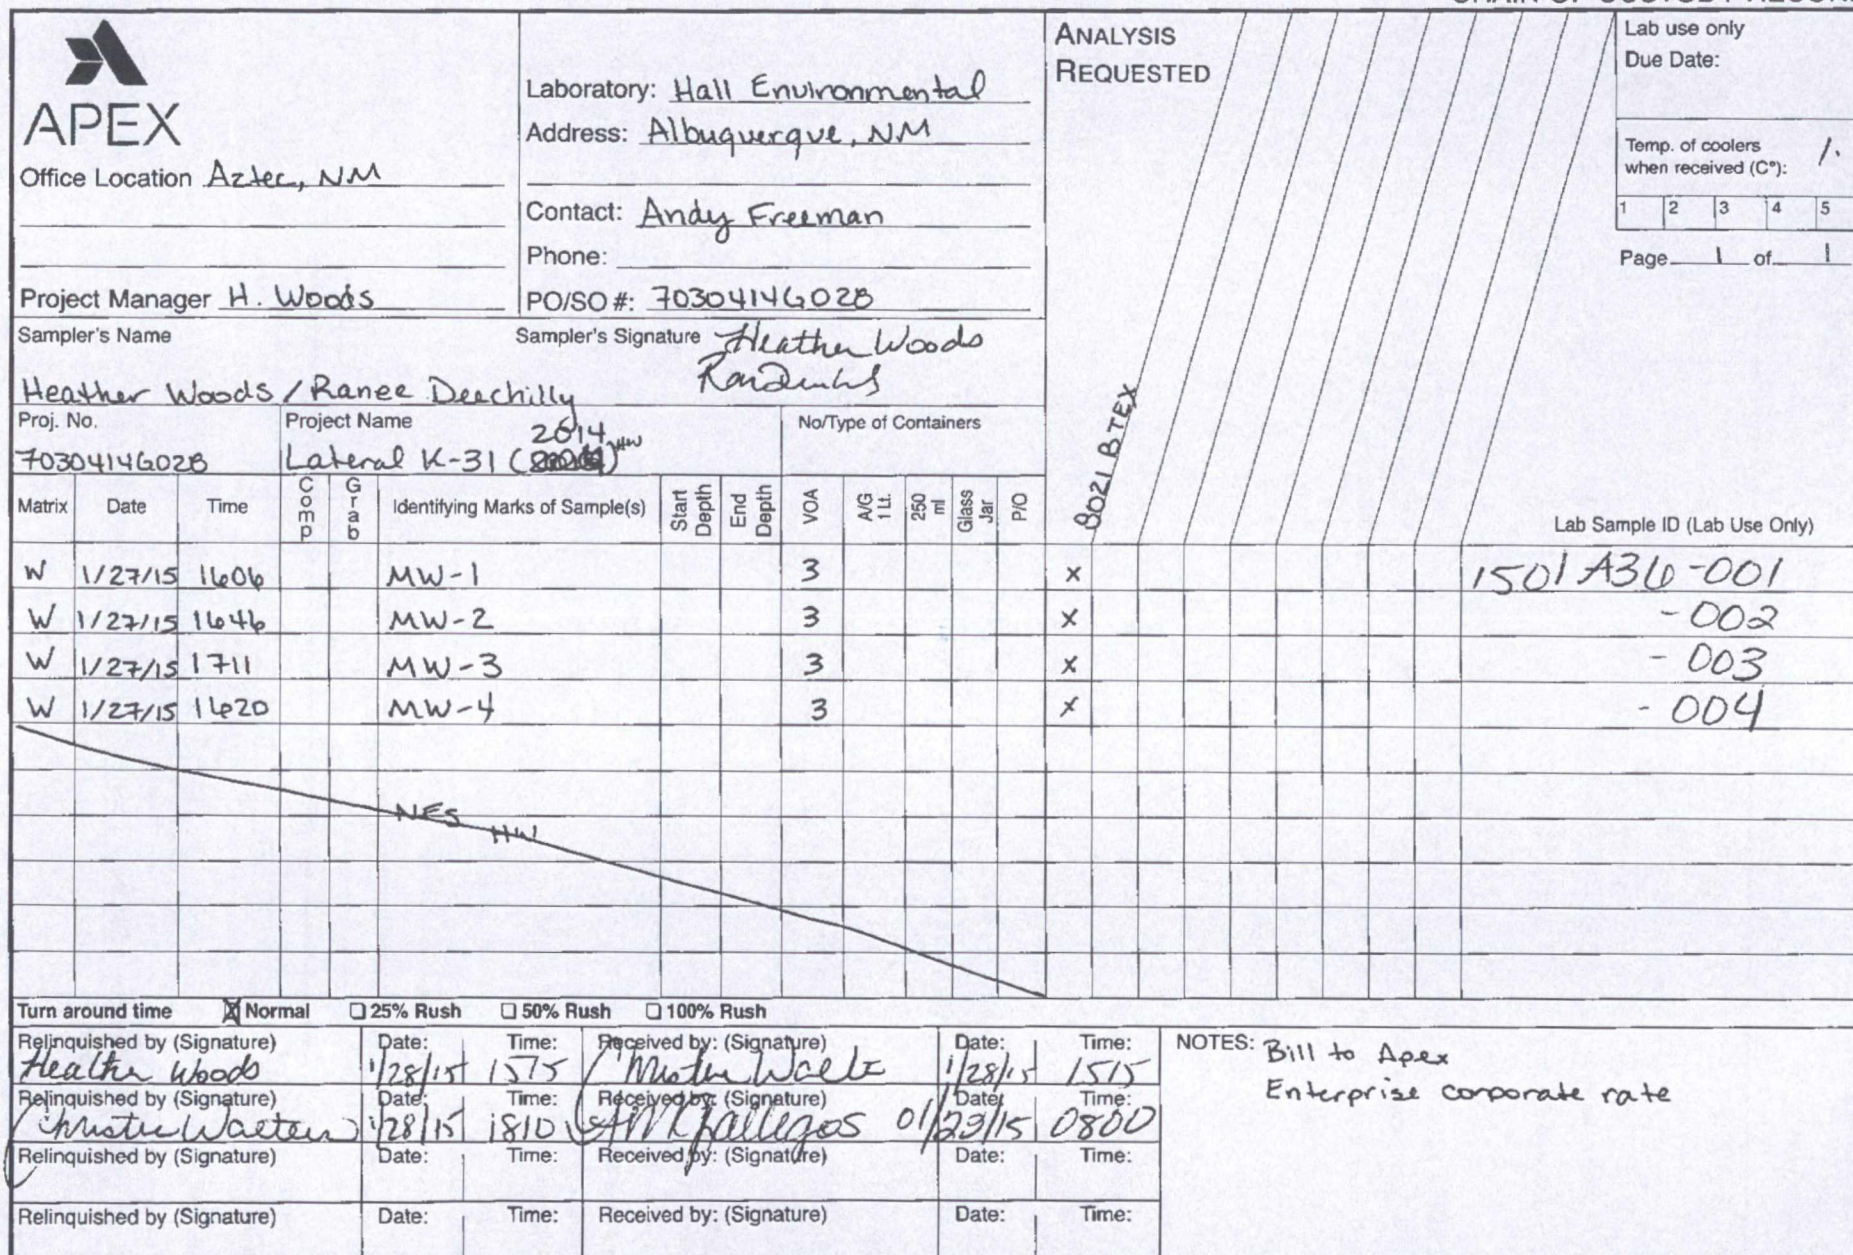 CHAIN OF CUSTODY RECORD
APEX
Office Location Aztec, NM
Project Manager H. Woods
Laboratory: Hall Environmental
Address: Albuquerque, NM
Contact: Andy Freeman
Phone:
PO/SO #: 7030414G028
ANALYSIS
REQUESTED
8021 BTEX
Lab use only
Due Date:
Temp. of coolers
when received (C°): 1.
1 2 3 4 5
Page 1 of 1
Sampler's Name
Heather Woods / Ranee Deechilly
Sampler's Signature Heather Woods
Proj. No.
7030414G028
Project Name
2014 HW
Lateral K-31 ( )
No/Type of Containers
Matrix Date Time Comp Grab Identifying Marks of Sample(s) Start Depth End Depth VOA A/G 1 Lt. 250 ml Glass Jar P/O Lab Sample ID (Lab Use Only)
W 1/27/15 1606 MW-1 3 x 1501A36-001
W 1/27/15 1646 MW-2 3 x -002
W 1/27/15 1711 MW-3 3 x -003
W 1/27/15 1620 MW-4 3 x -004
NES HW
Turn around time Normal 25% Rush 50% Rush 100% Rush
Relinquished by (Signature) Date: Time: Received by: (Signature) Date: Time:
Heather Woods 1/28/15 1515 1/28/15 1515
Relinquished by (Signature) Date: Time: Received by: (Signature) Date: Time:
Christie Walters 1/28/15 1810 Gallegos 0800
Relinquished by (Signature) Date: Time: Received by: (Signature) Date: Time:
Relinquished by (Signature) Date: Time: Received by: (Signature) Date: Time:
NOTES: Bill to Apex
Enterprise corporate rate